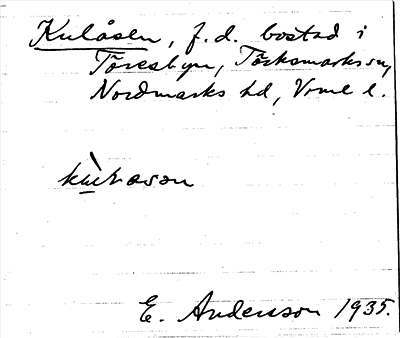 Kulåsen, f.d. bostad i
Töresbyn, Töcksmarks sn,
Nordmarks hd, Vrml l.
E. Andersson 1935.